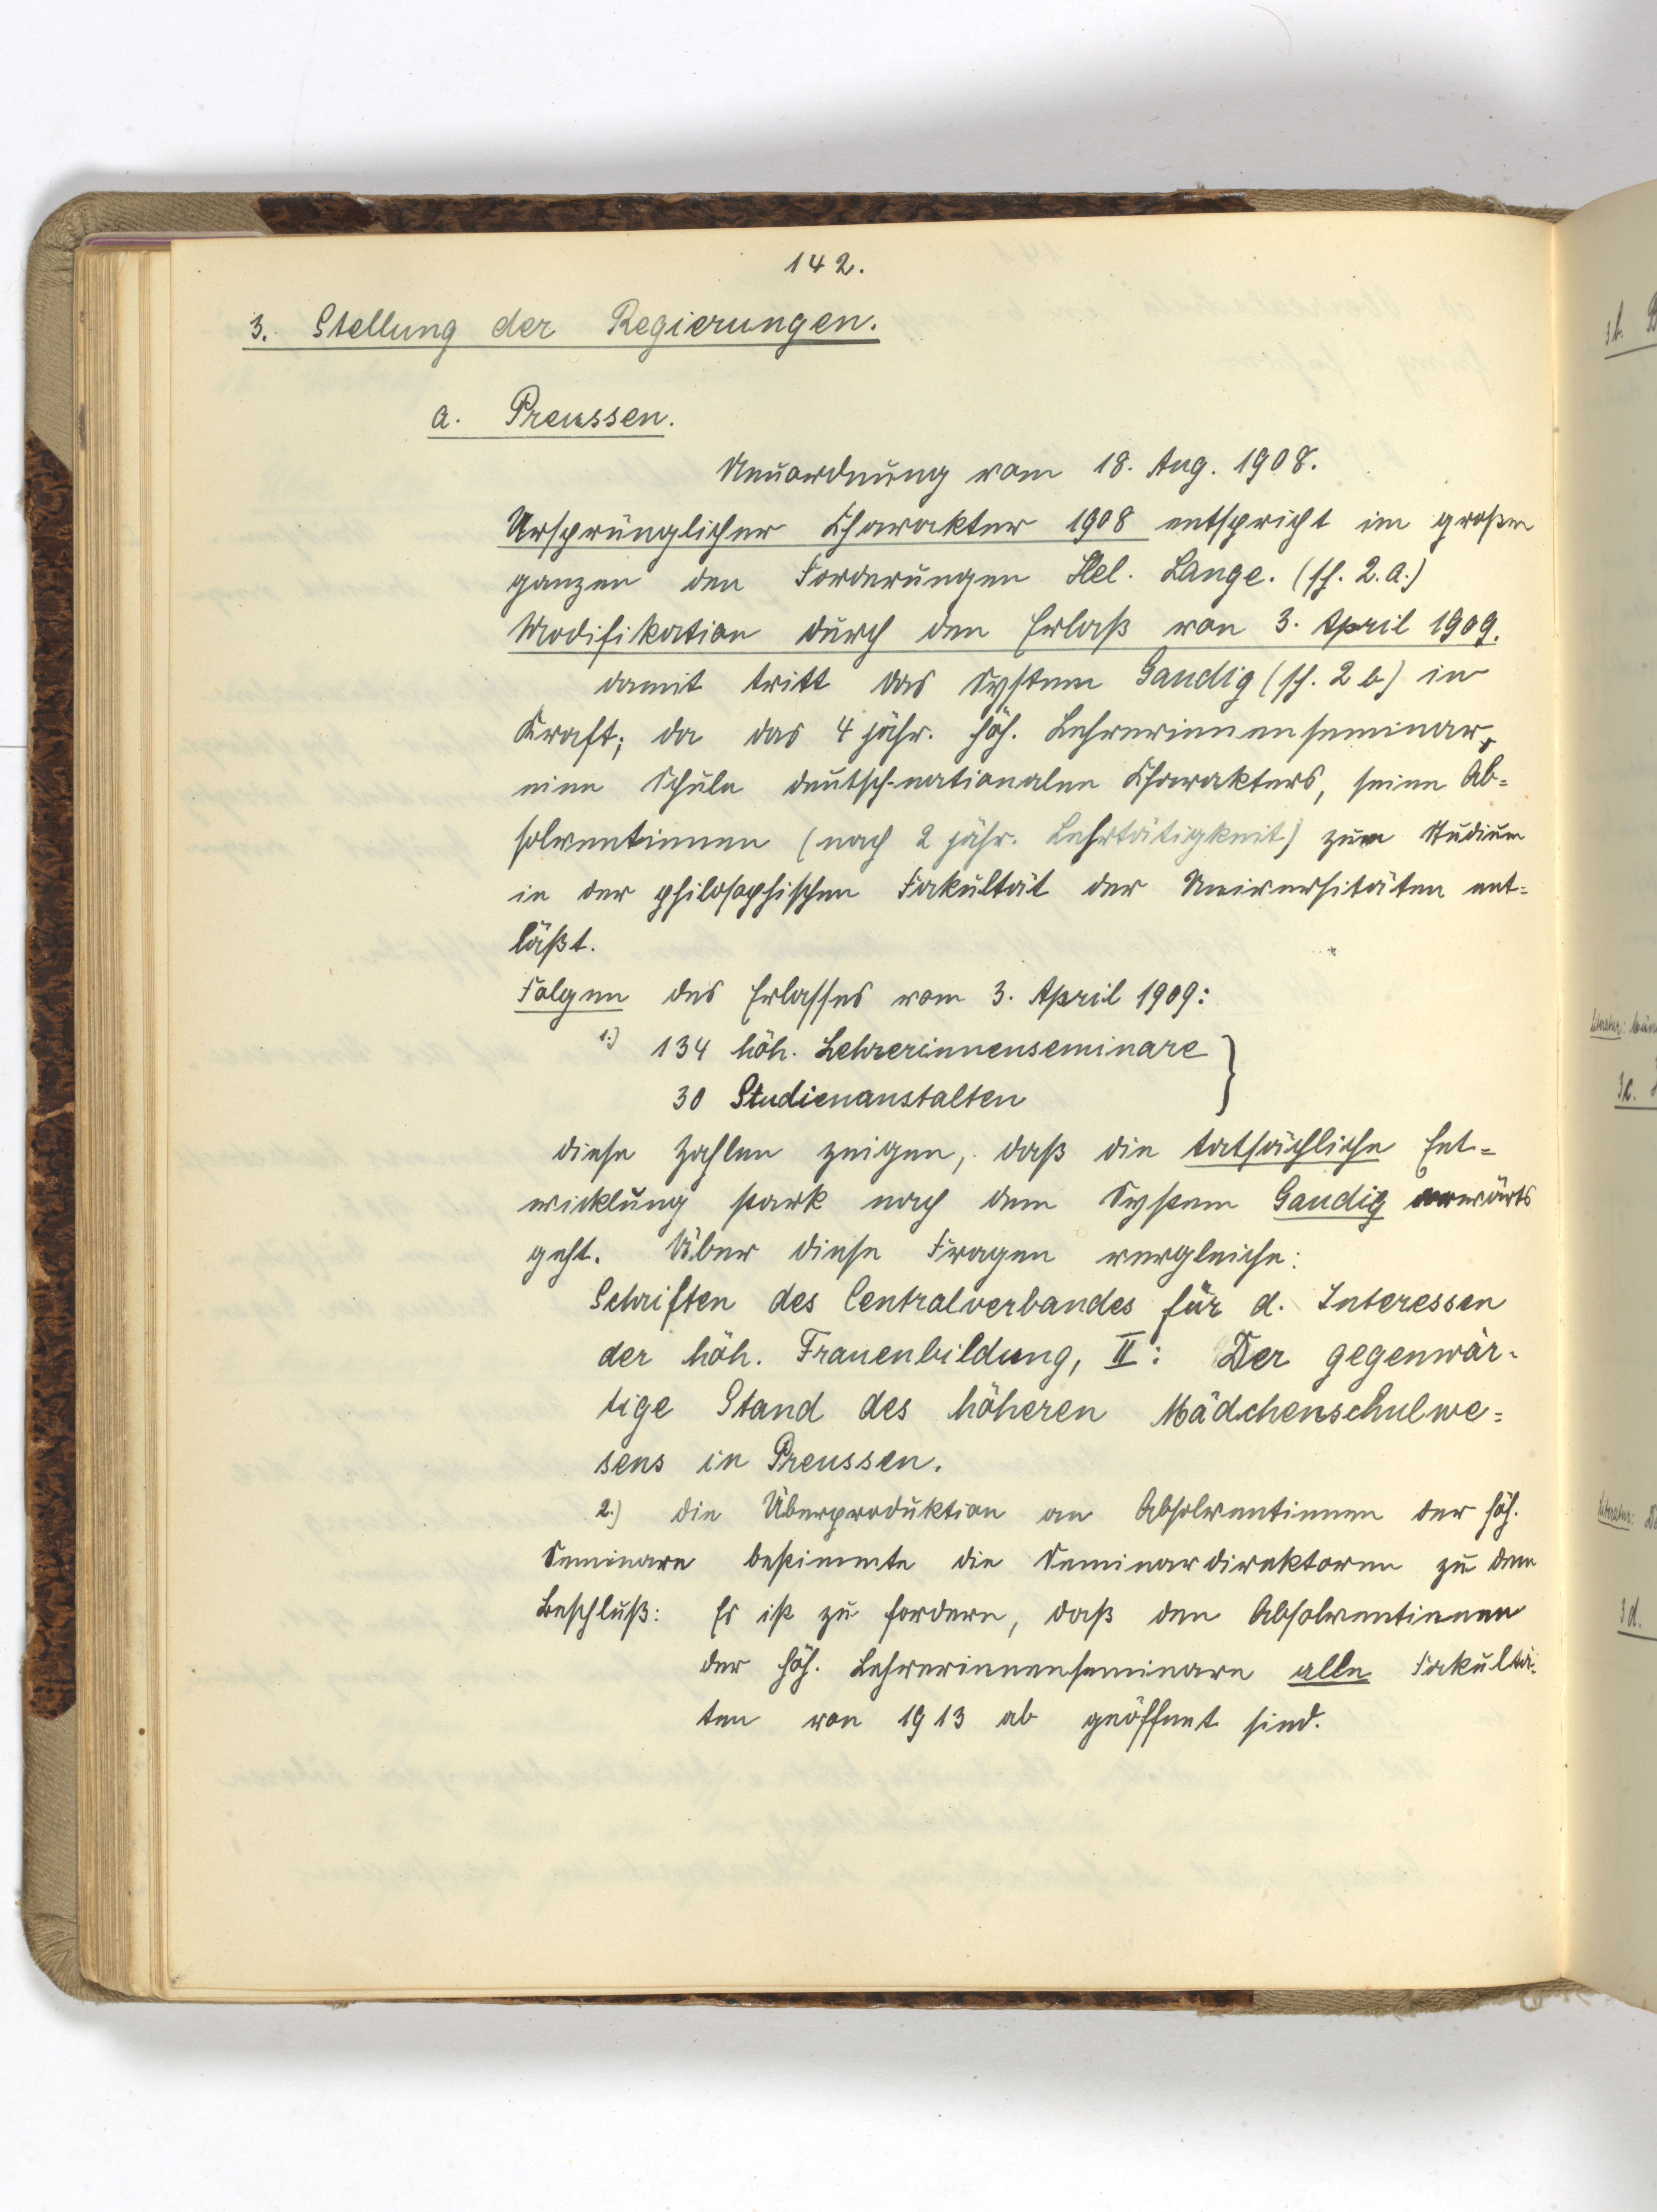 142.
3. Stellung der Regierungen.
a. Preussen.
Neuordnung vom 18. Aug. 1908.
Ursprünglicher Charakter 1908 entspricht im großen
ganzen den Forderungen Hel. Lange. (sh. 2.a.)
Modifikation durch den Erlaß von 3. April 1909.
damit tritt das System Gaudig (sh. 2 b) in
Kraft; da das 4 jähr. höh. Lehrerinnenseminar,
eine Schule deutsch-nationalen Charakters, seine Ab=
solventinnen (nach 2 jähr. Lehrtätigkeit) zum Studium
in der philosophischen Fakultät der Universitäten ent=
läßt.
Folgen des Erlasses vom 3. April 1909:
1.) 134 höh. Lehrerinnenseminare }
30 Studienanstalten
diese Zahlen zeigen, daß die tatsächliche Ent=
wicklung stark nach dem System Gaudig vorwärts
geht. Über diese Fragen vergleiche:
Schriften des Centralverbandes für d. Interessen
der höh. Frauenbildung, II: Der gegenwär-
tige Stand des höheren Mädchenschulwe=
sens in Preussen.
2.) die Überproduktion an Absolventinnen der höh.
Seminare bestimmte die Seminardirektoren zu dem
Beschluß: Es ist zu fordern, daß den Absolventinnen
der höh. Lehrerinnenseminare alle Fakultä-
ten von 1913 ab geöffnet sind.
3b. B
Literatur:
3c.
Literatur:
3d.